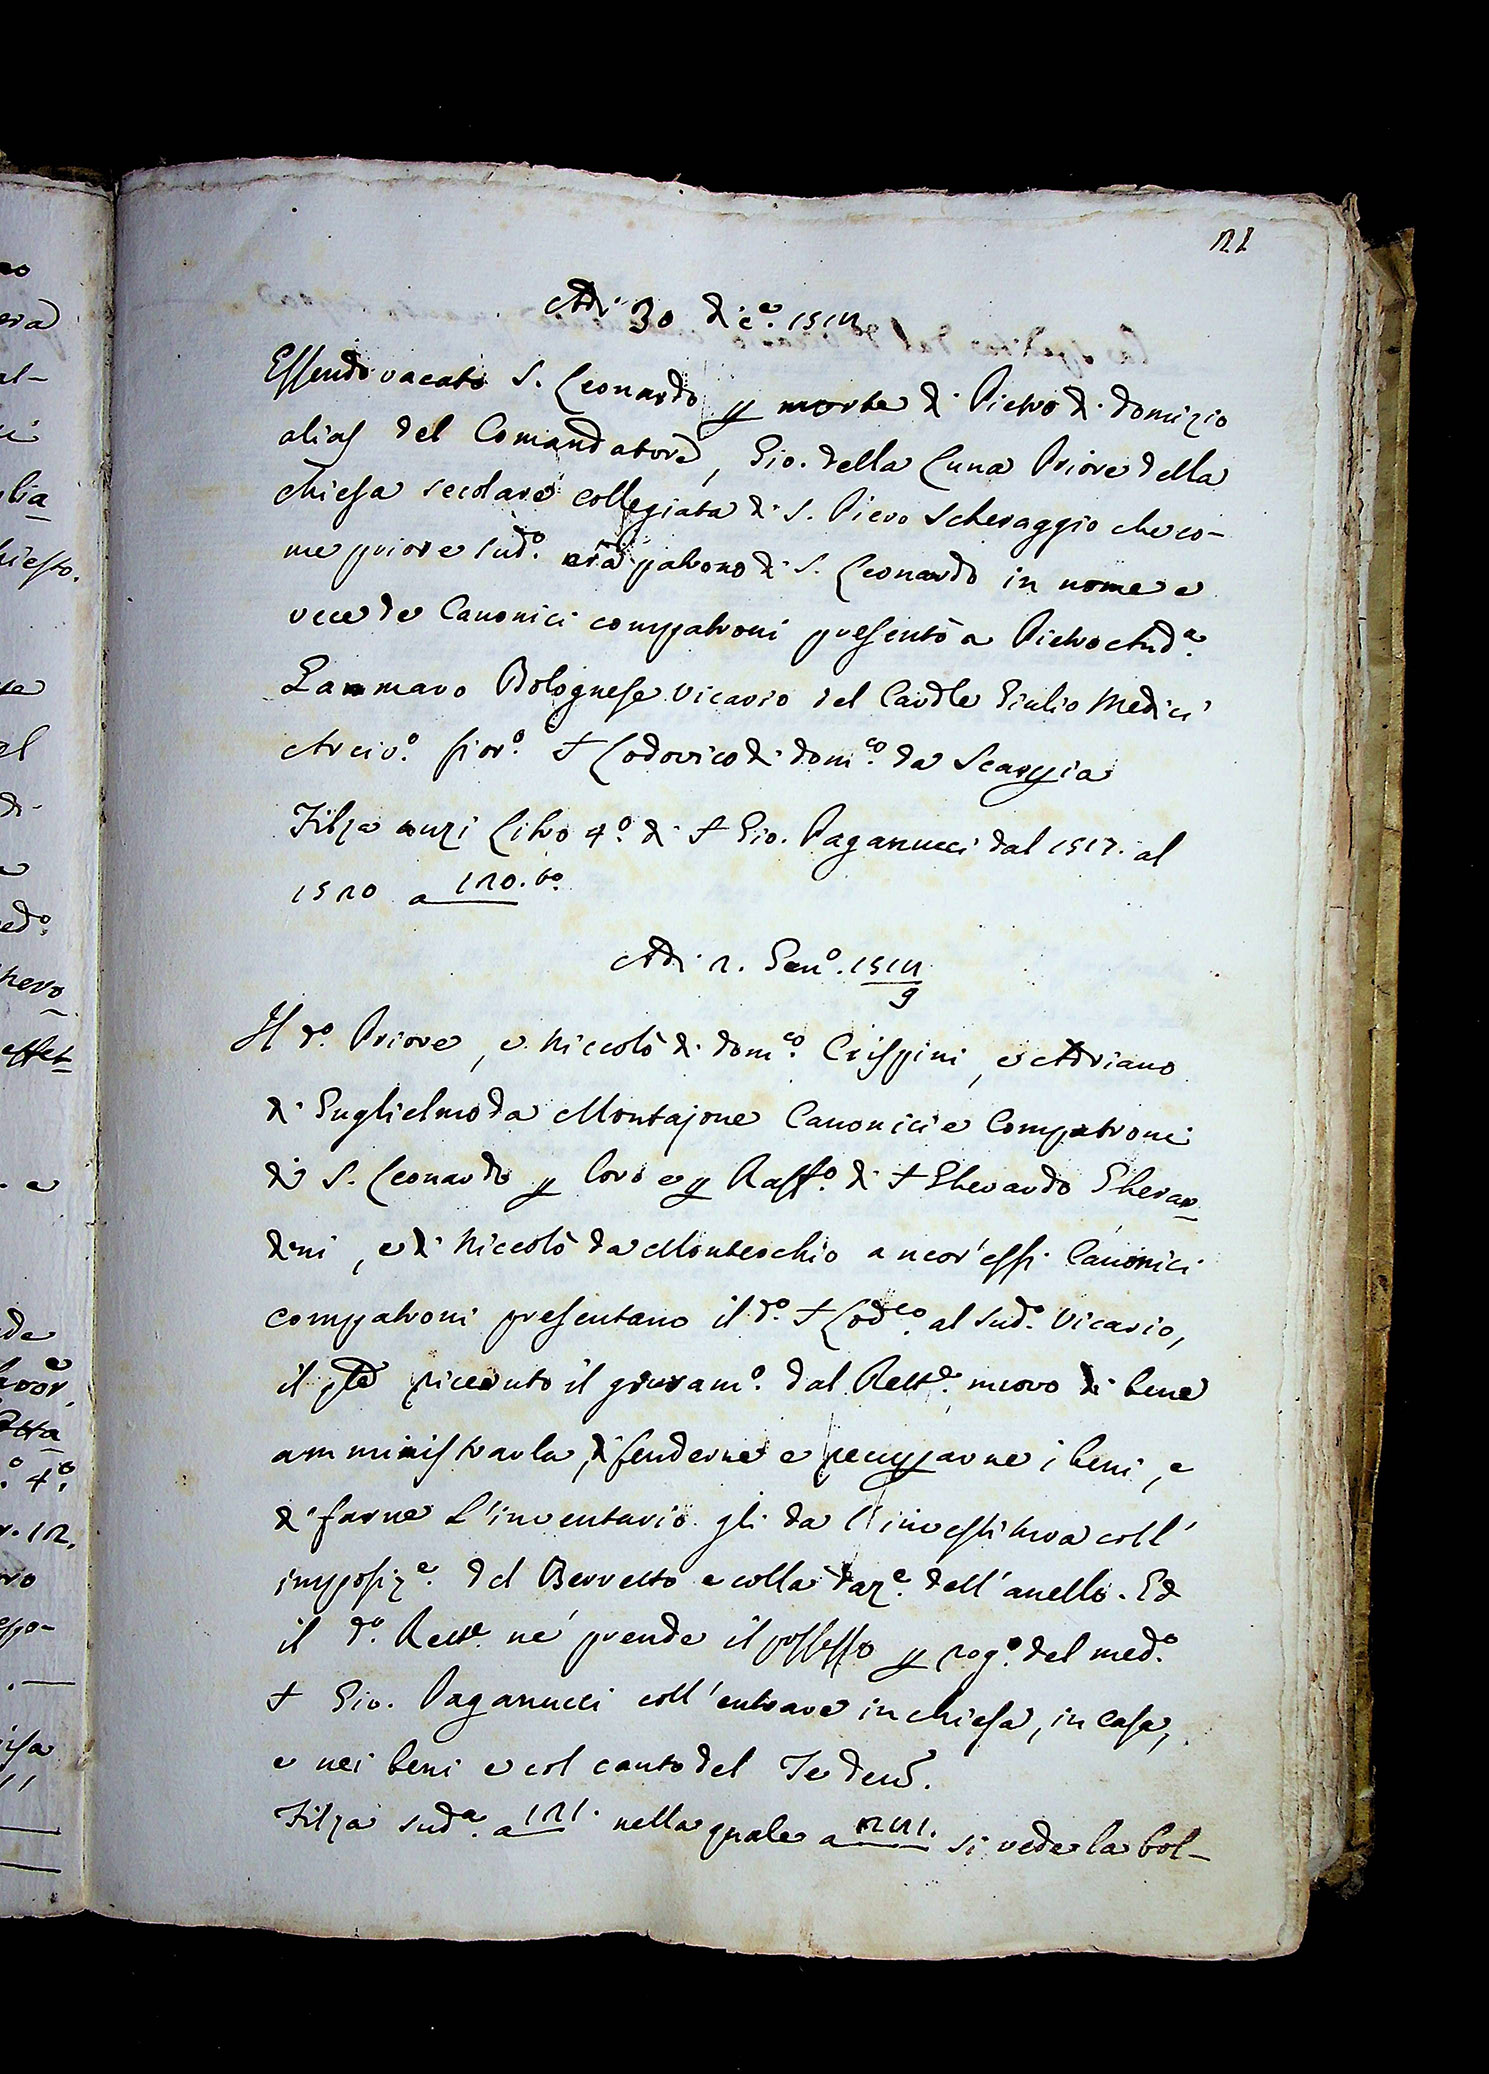 21
Adi 30 Dic.e 1518
Essendo vacato S. Leonardo p morte di Pietro di Domizio
alias del Comandatore, Gio. della Luna Priore della
Chiesa secolare collegiata di S. Piero Scheraggio che co-
me priore sud.o era patrono di S. Leonardo in nome e
vece de Canonici compatroni presentò a Pietro And.a
Gammaro Bolognese Vicario del Cardle Giulio Medici
Arciv.o fior.o + Lodovico di Dom.co da Scarperia
Filza anzi Libro 4.o di + Gio. Paganucci dal 1517. al
1520 a 120. to.
Adi 2. Gen.o 1518/9
Il d.o Priore, e Niccolò di Dom.co Crispini, e Adriano
di Guglielmo da Montajone Canonici e Compatroni
di S. Leonardo p loro e p Raff.o di + Gherardo Gherar-
dini, e di Niccolò da Montecchio ancor'essi Canonici
compatroni presentano il d.o + Lod.co al sud.o Vicario,
il qle ricevuto il giuram.o dal Rett.e nuovo di bene
amministrarla, difenderne e recuparne i beni, e
di farne l'inventario gli da l'investitura coll'
imposiz.e del Berretto e colla daz.e dell'anello. Ed
il d.o Rett.e ne prende il possesso p rog.o del med.o
+ Gio. Paganucci coll'entrare in chiesa, in casa,
e nei beni e col canto del Te deu.
Filza sud.a a 121. nella quale a 281. si vede la bol-